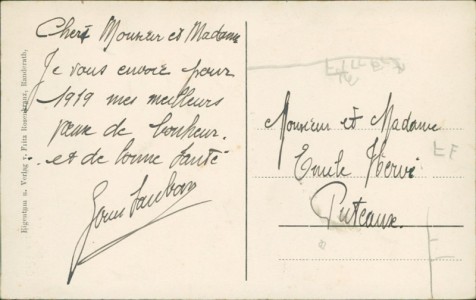 Chers Monsieur et Madame
Je vous envoie pour
1919 mes meilleurs
vœux de bonheur.
et de bonne santé
Monsieur et Madame
Emile Hervé
Puteaux.
EF
Eigentum u. Verlag v. Fritz Randerath,